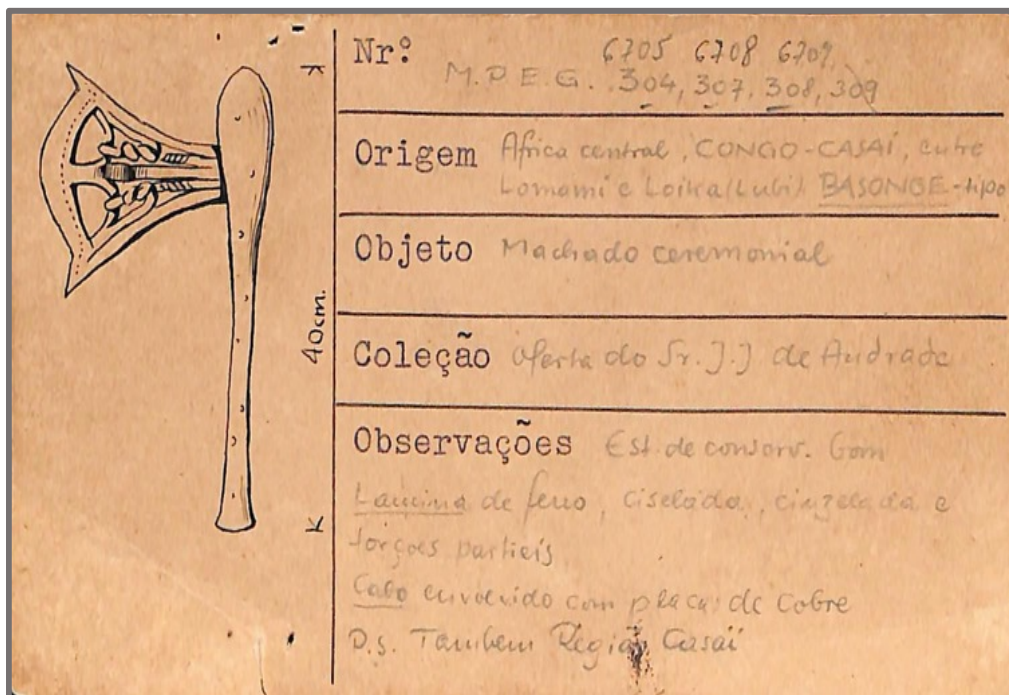 Nr: 6705 6708 6709
M.P.E.G. 304, 307, 308, 309
Origem Africa central, CONGO-CASAÍ, entre
Lomami e (Lubi) BASONGE-tipo
Objeto Machado ceremonial
40cm.
Coleção oferta do Sr. J.J de Andrade
Observações Est. de conserv. bom
Lamina de ferro, ciselada, cinzelada e
torçoes partieis
Cabo envolvido com placas de cobre
Tambem Região Casaï